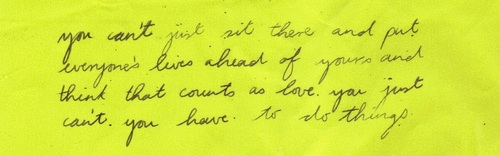 you can't just sit there and put
everyone's lives ahead of yours and
think that counts as love. you just
can't. you have. to do things.